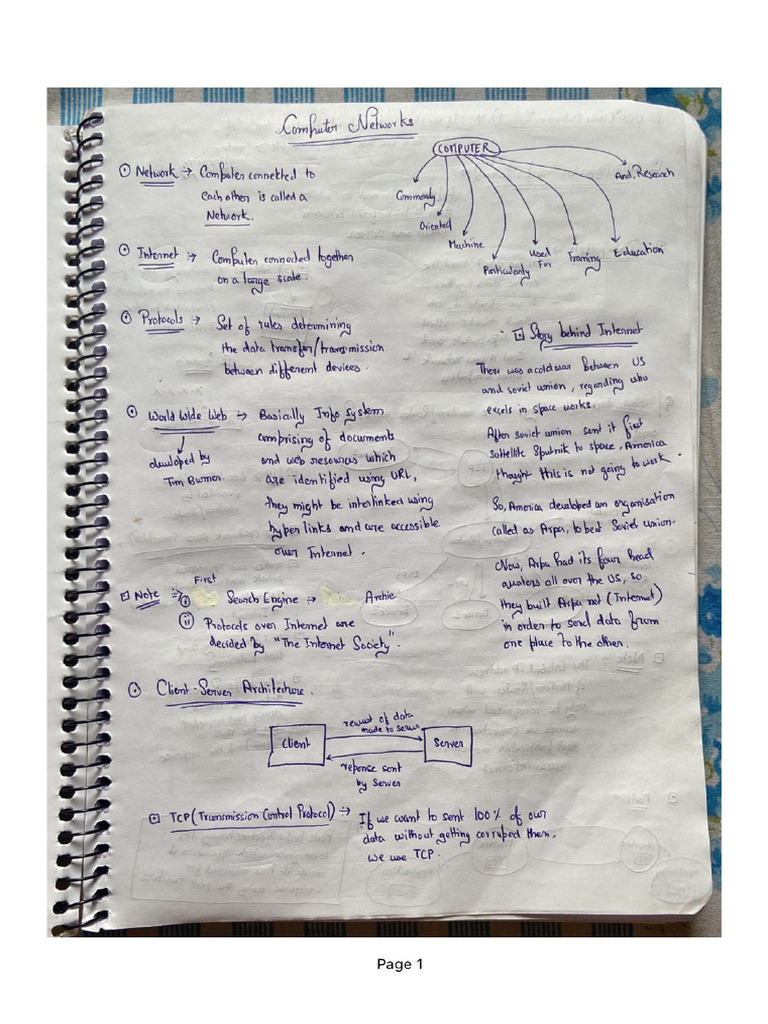 Computer Networks
COMPUTER
Commonly
Oriented
Machine
Particularly
Used
For
Training
Education
And. Research
⊙ Network → Computer connekted to
each other is called a
Network.
⊙ Internet → Computer connected together
on a large scale.
⊙ Protocols → Set of rules determining
the data transfer/transmission
between different devices.
⊙ World Wide Web → Basically Info System
comprising of documents
and web resources which
are identified using URL,
they might be interlinked using
hyper links and are accessible
over Internet.
developed by
Tim Burner
⊡ Note → First
(i) Search Engine → Archie
(ii) Protocols over Internet are
decided by "The Internet Society".
⊡ Story behind Internet
There was a cold war between US
and soviet union, regarding who
excels in space works.
After soviet union sent it first
sattellite Sputnik to space, America
thought this is not going to work.
So, America developed an organisation
called as Arpa, to beat Soviet union.
Now, Arpa had its four head
quaters all over the US, so
they built Arpa net (Internet)
in order to send data from
one place to the other.
⊙ Client-Server Architecture.
Client
request of data
made to server
Server
reponse sent
by Server
⊡ TCP (Transmission Control Protocol) → If we want to sent 100% of our
data without getting corruped then,
we use TCP.
Page 1